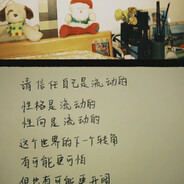 请信任自己是流动的
性格是流动的
性向是流动的
这个世界的下一个转角
有可能更可怕
但也有可能更开阔